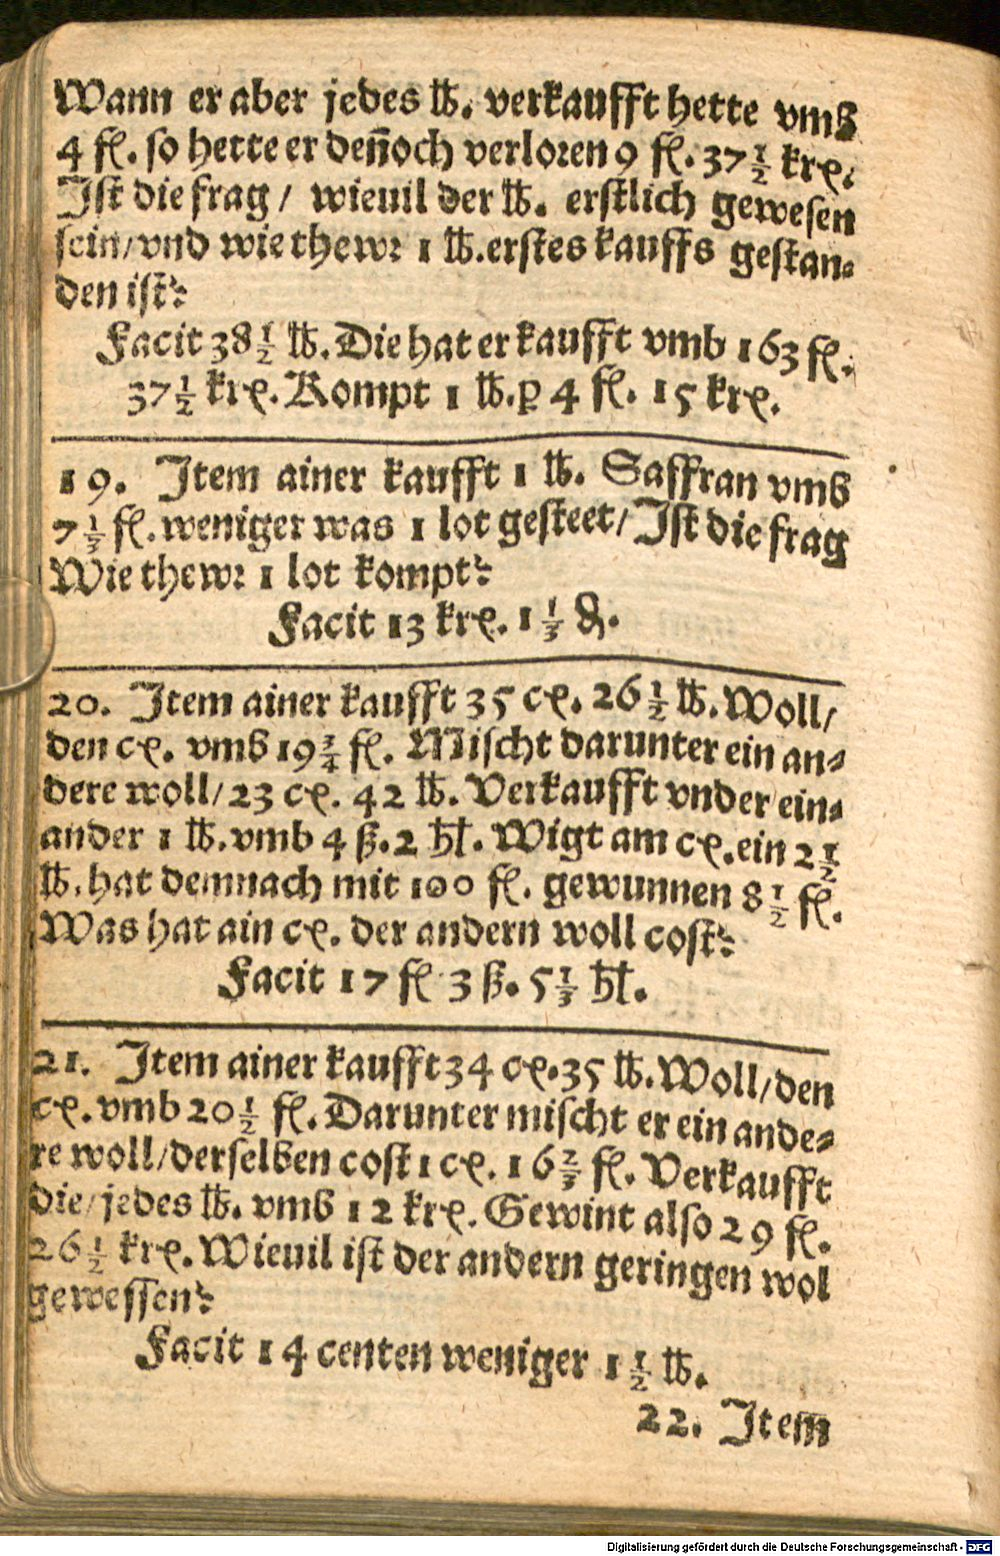 Wann er aber jedes lb. verkaufft hette vmb
4 fl. so hette er deñoch verloren 9 fl. 37 1/2 krz.
Ist die frag / wieuil der lb. erstlich gewesen
sein/vnd wie thewr 1 lb. erstes kauffs gestan-
den ist?
Facit 38 1/2 lb. Die hat er kaufft vmb 163 fl.
37 1/2 krz. Kompt 1 lb. p 4 fl. 15 krz.
19. Item ainer kaufft 1 lb. Saffran vmb
7 1/3 fl. weniger was 1 lot gesteet/Ist die frag
Wie thewr 1 lot kompt?
Facit 13 krz. 1 1/3 ₰.
20. Item ainer kaufft 35 cz. 26 1/2 lb. Woll/
den cz. vmb 19 3/4 fl. Mischt darunter ein an-
dere woll/23 cz. 42 lb. Verkaufft vnder ein-
ander 1 lb. vmb 4 ß. 2 hl. Wigt am cz. ein 2 1/2
lb. hat demnach mit 100 fl. gewunnen 8 1/2 fl.
Was hat ain cz. der andern woll cost?
Facit 17 fl 3 ß. 5 1/3 hl.
21. Item ainer kaufft 34 cz. 35 lb. Woll/den
cz. vmb 20 1/2 fl. Darunter mischt er ein ande-
re woll/derselben cost 1 cz. 16 2/3 fl. Verkaufft
die/jedes lb. vmb 12 krz. Gewint also 29 fl.
26 1/2 krz. Wieuil ist der andern geringen wol
gewessen?
Facit 14 centen weniger 1 1/2 lb.
22. Item
Digitalisierung gefördert durch die Deutsche Forschungsgemeinschaft - DFG